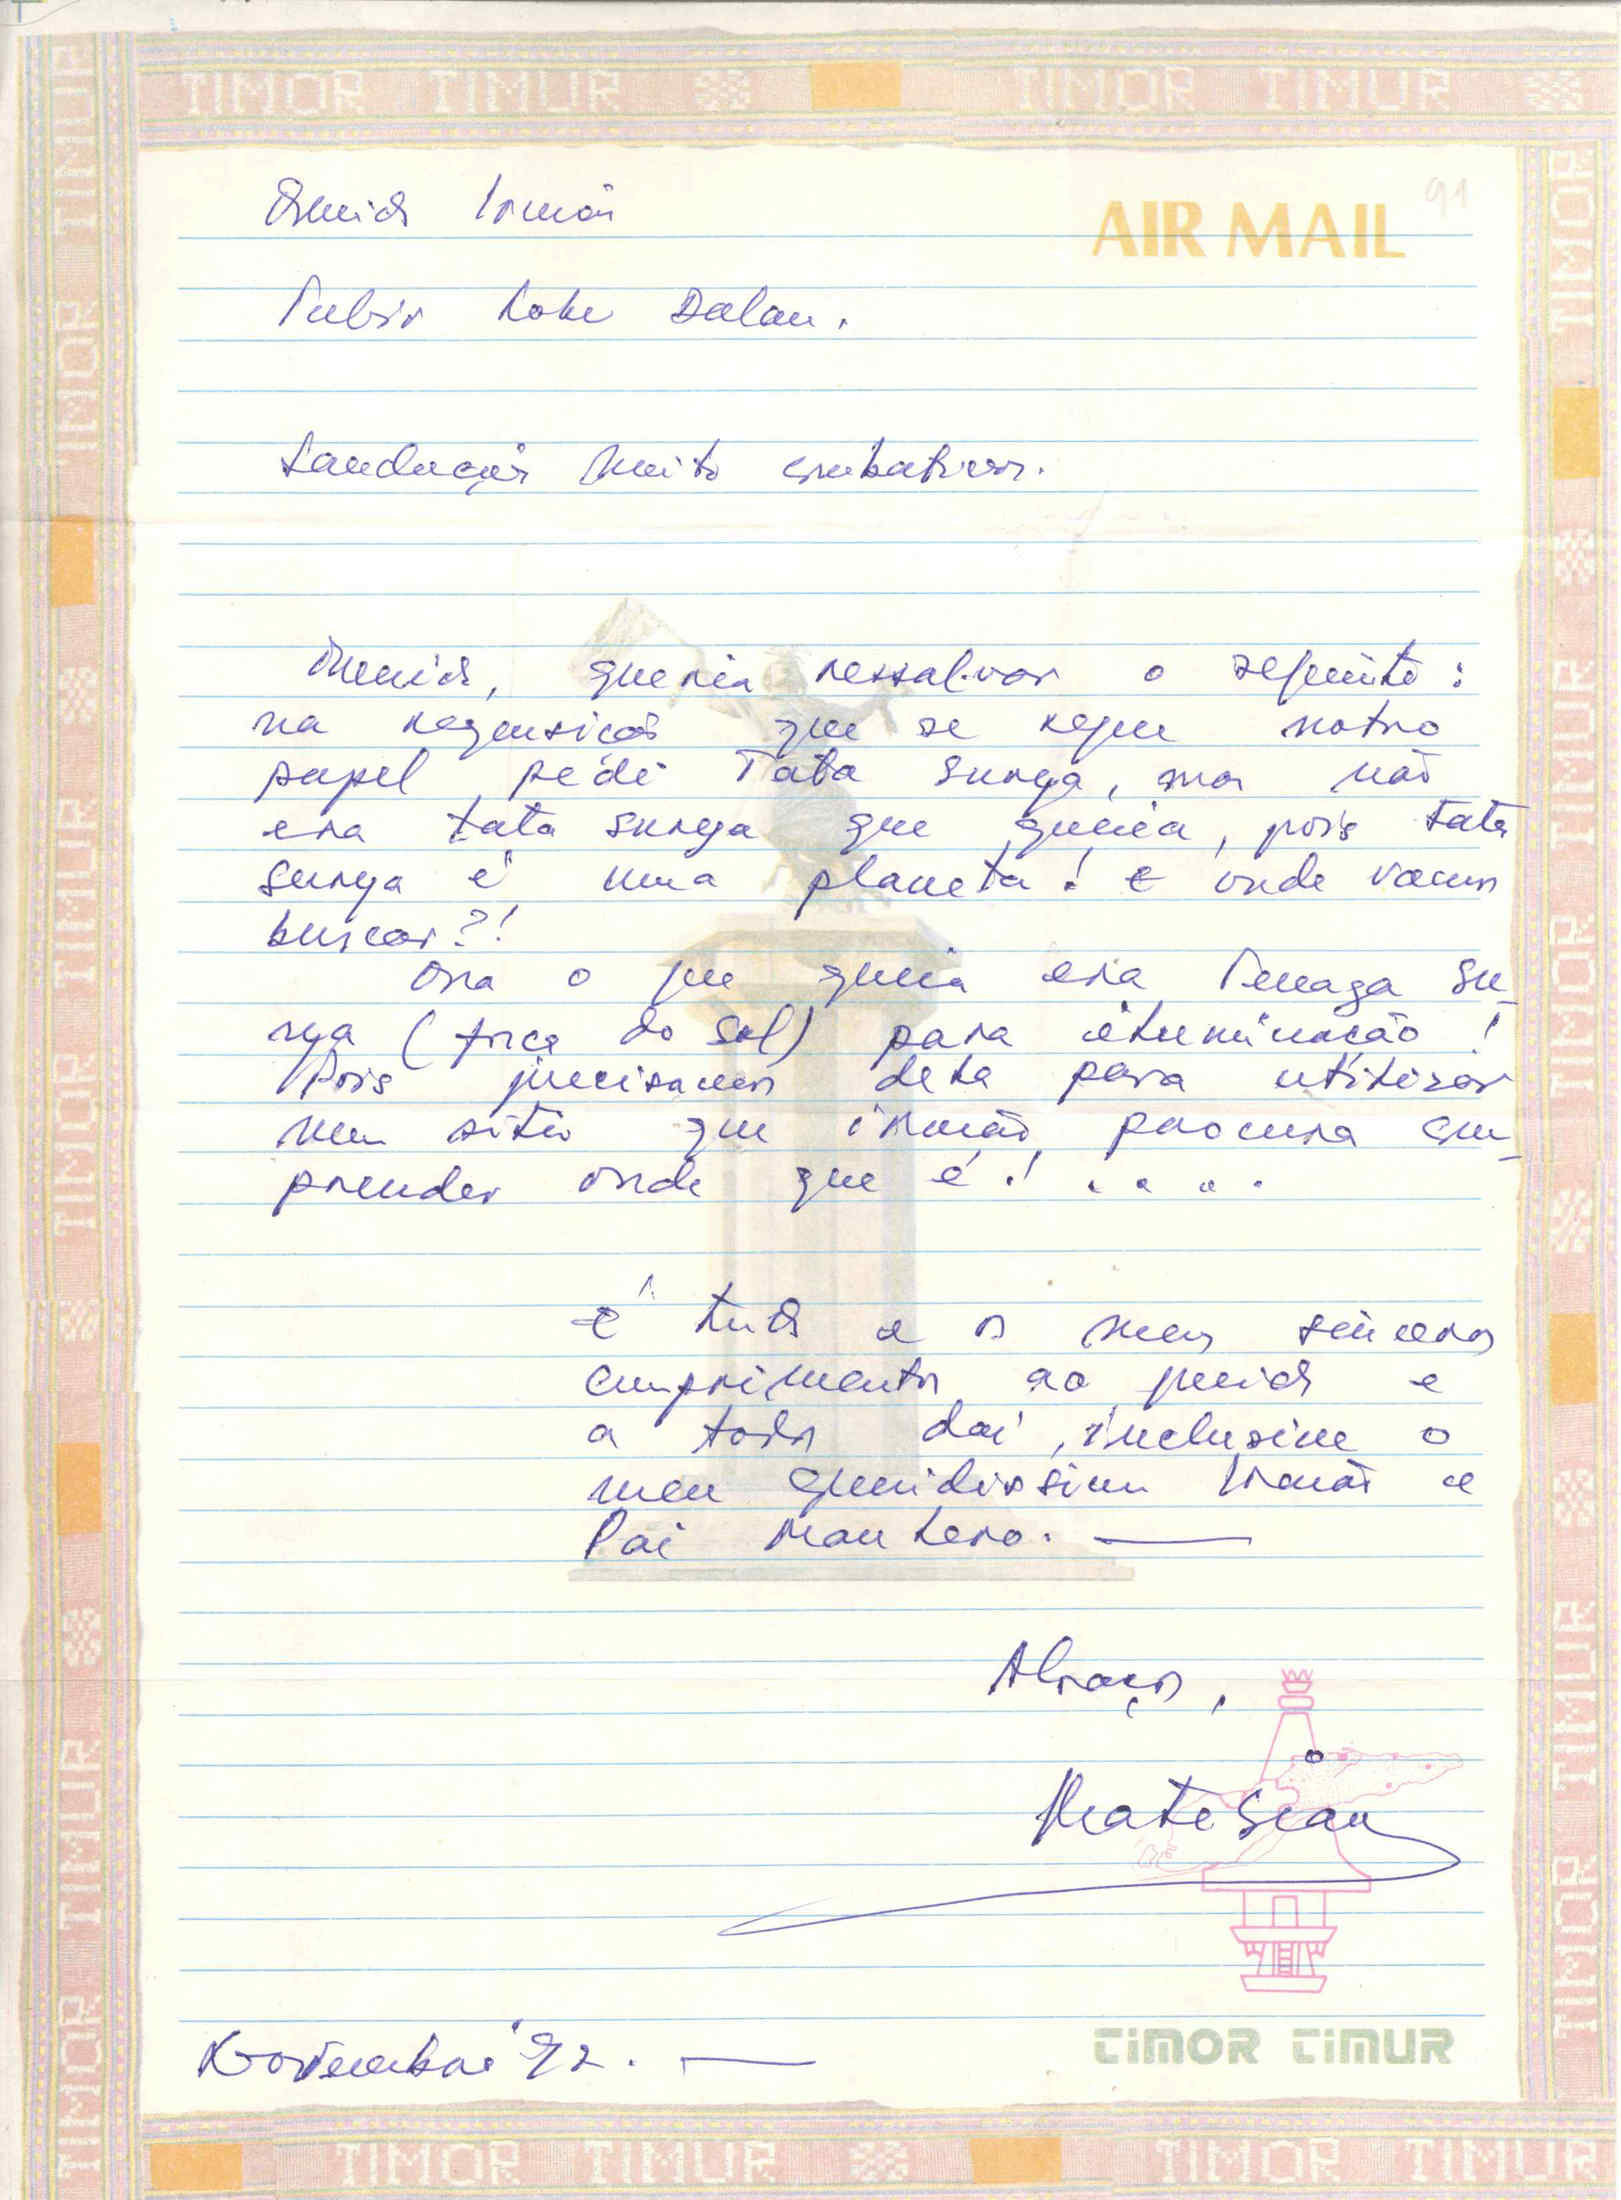 TIMOR TIMUR TIMOR TIMUR
AIR MAIL
91
Querido Irmão
Tubir Loke Dalan.
Saudações muito combativas.
Querido, queria ressalvar o seguinte:
na requisição que se segue noutro
papel pedi Tata Surya, mas não
era tata surya que queria, pois tata
surya é uma planeta! E onde vamos
buscar?!
Ora o que queria era Tenaga Su-
rya (força do sol) para iluminação!
Pois precisamos dela para utilizar
num sitio que irmão procura com-
preender onde que é! ....
É tudo e os meus sinceros
cumprimentos ao querido e
a todos daí, inclusive o
meu queridissimo Irmão e
Pai Mau Lero. —
Abraços,
Mate Sian
Novembro '92. —
TIMOR TIMUR
TIMOR TIMUR TIMOR TIMUR